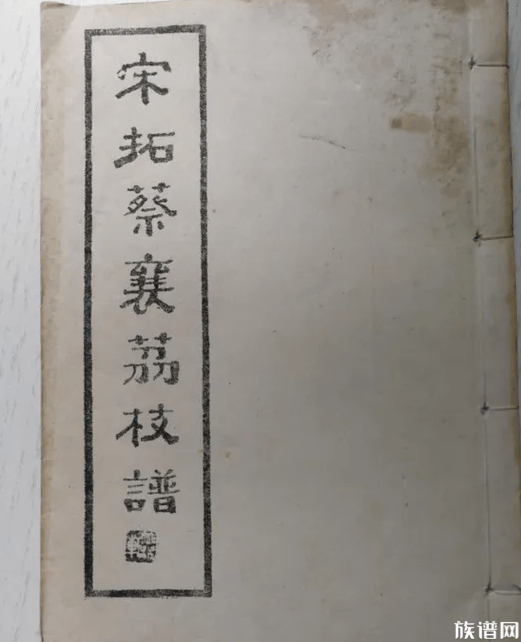 宋拓蔡襄茘枝譜
族谱网